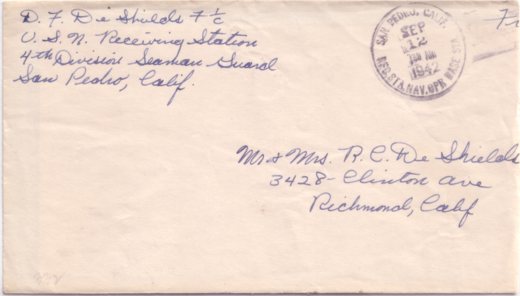 D. F. De Shields F 1/c
U. S. N. Receiving Station
4th Division Seaman Guard
San Pedro, Calif.
SAN PEDRO, CALIF.
SEP
12
1942
REC. STA. NAV. OPR BASE
Mr & Mrs. R. C. De Shields
3428 - Clinton Ave
Richmond, Calif